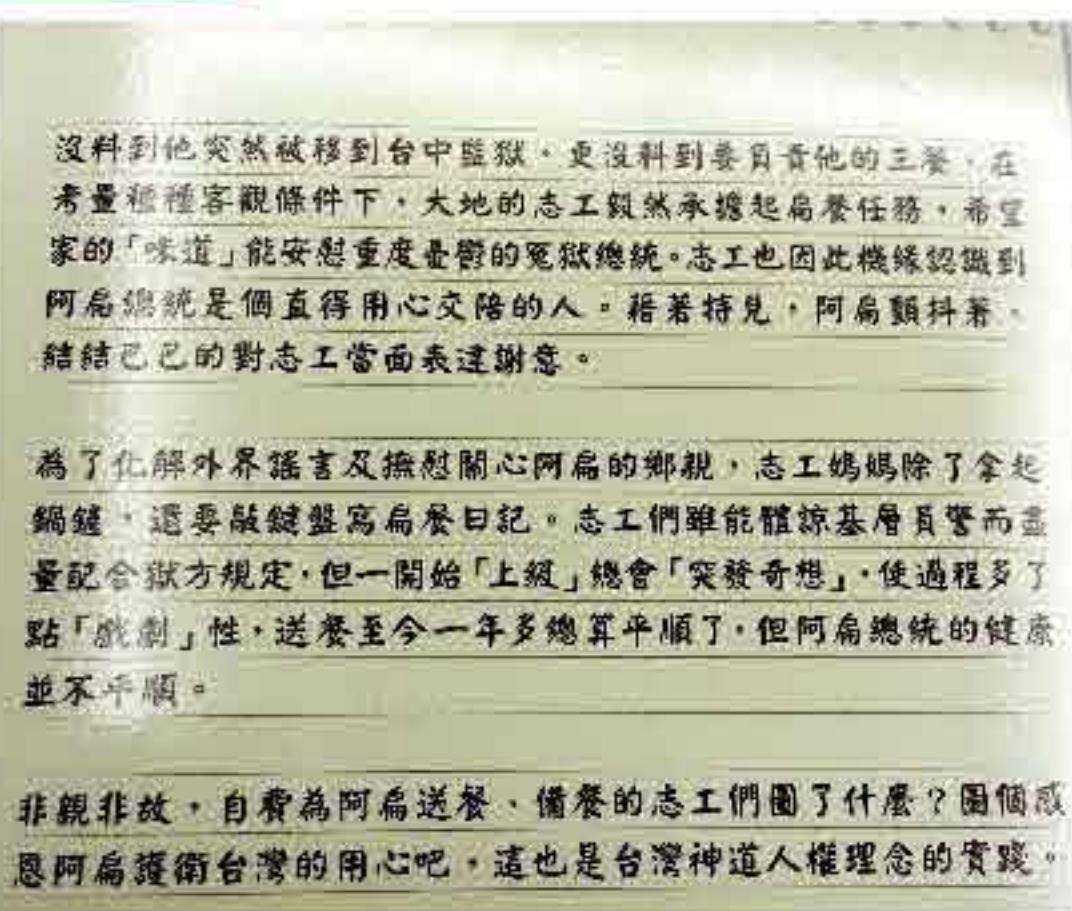 沒料到他突然被移到台中監獄，更沒料到要負責他的三餐，在
考量種種客觀條件下，大地的志工毅然承擔起扁餐任務，希望
家的「味道」能安慰重度憂鬱的冤獄總統。志工也因此機緣認識到
阿扁總統是個直得用心交陪的人。藉著特見，阿扁顫抖著、
結結己己的對志工當面表達謝意。
為了化解外界謠言及撫慰關心阿扁的鄉親，志工媽媽除了拿起
鍋鏟，還要敲鍵盤寫扁餐日記。志工們雖能體諒基層員警而盡
量配合獄方規定，但一開始「上級」總會「突發奇想」，使過程多了
點「戲劇」性，送餐至今一年多總算平順了，但阿扁總統的健康
並不平順。
非親非故，自費為阿扁送餐、備餐的志工們圖了什麼？圖個感
恩阿扁護衛台灣的用心吧，這也是台灣神道人權理念的實踐。